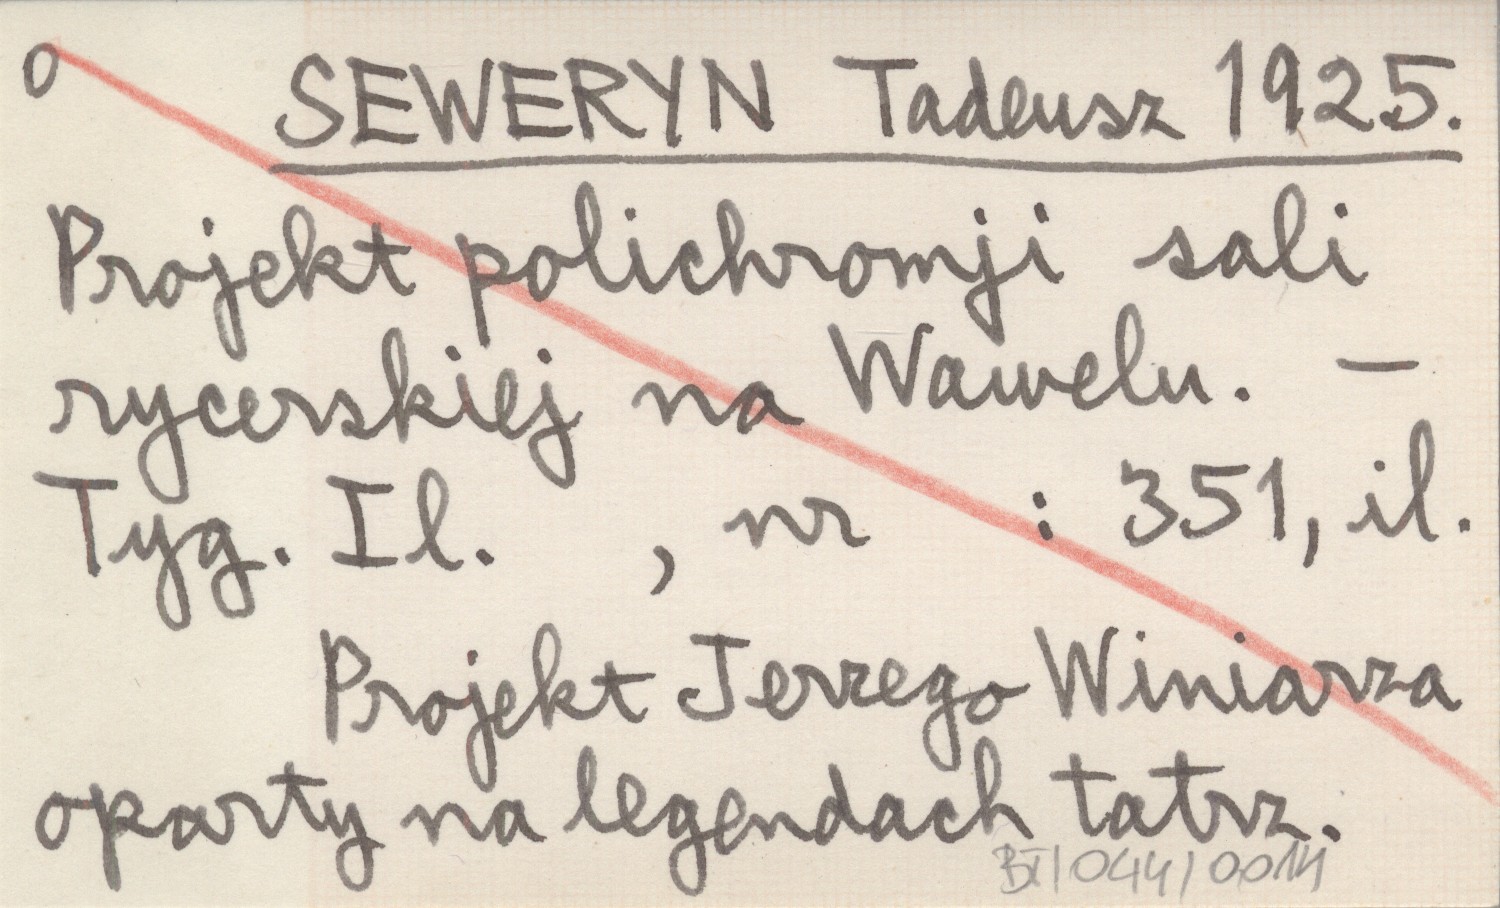 o SEWERYN Tadeusz 1925.
Projekt polichromji sali
rycerskiej na Wawelu. —
Tyg. Il. , nr : 351, il.
Projekt Jerzego Winiarza
oparty na legendach tatrz.
BI/044/0014